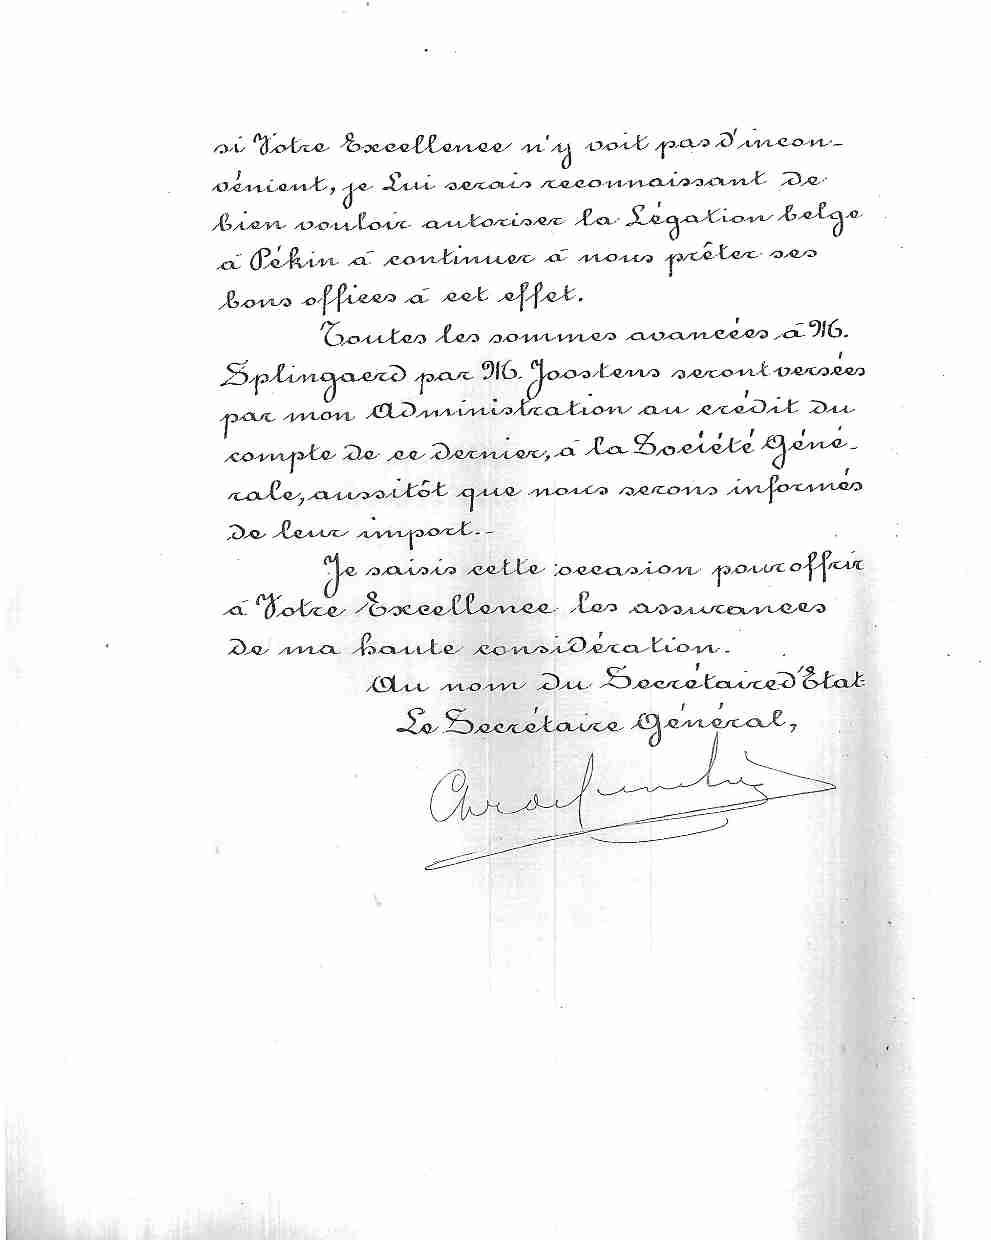 si Votre Excellence n'y voit pas d'incon-
vénient, je Lui serais reconnaissant de
bien vouloir autoriser la Légation belge
à Pékin à continuer à nous prêter ses
bons offices à cet effet.
Toutes les sommes avancées à M.
Splingaerd par M. Joostens seront versées
par mon Administration au crédit du
compte de ce dernier, à la Société Géné-
rale, aussitôt que nous serons informés
de leur import.-
Je saisis cette occasion pour offrir
à Votre Excellence les assurances
de ma haute considération.
Au nom du Secrétaire d'Etat
Le Secrétaire Général,